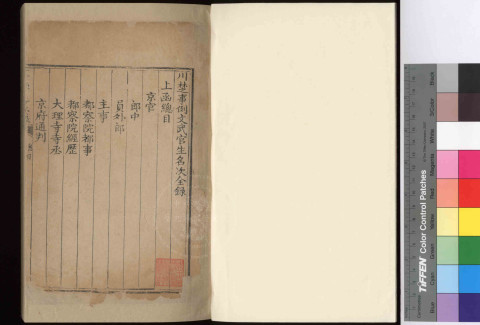 川楚事例文武官生名次全錄
上函總目
京官
郎中
員外郎
主事
都察院都事
都察院經歷
大理寺寺丞
京府通判
TIFFEN Color Control Patches
Blue
Cyan
Green
Yellow
Red
Magenta
White
3/Color
Black